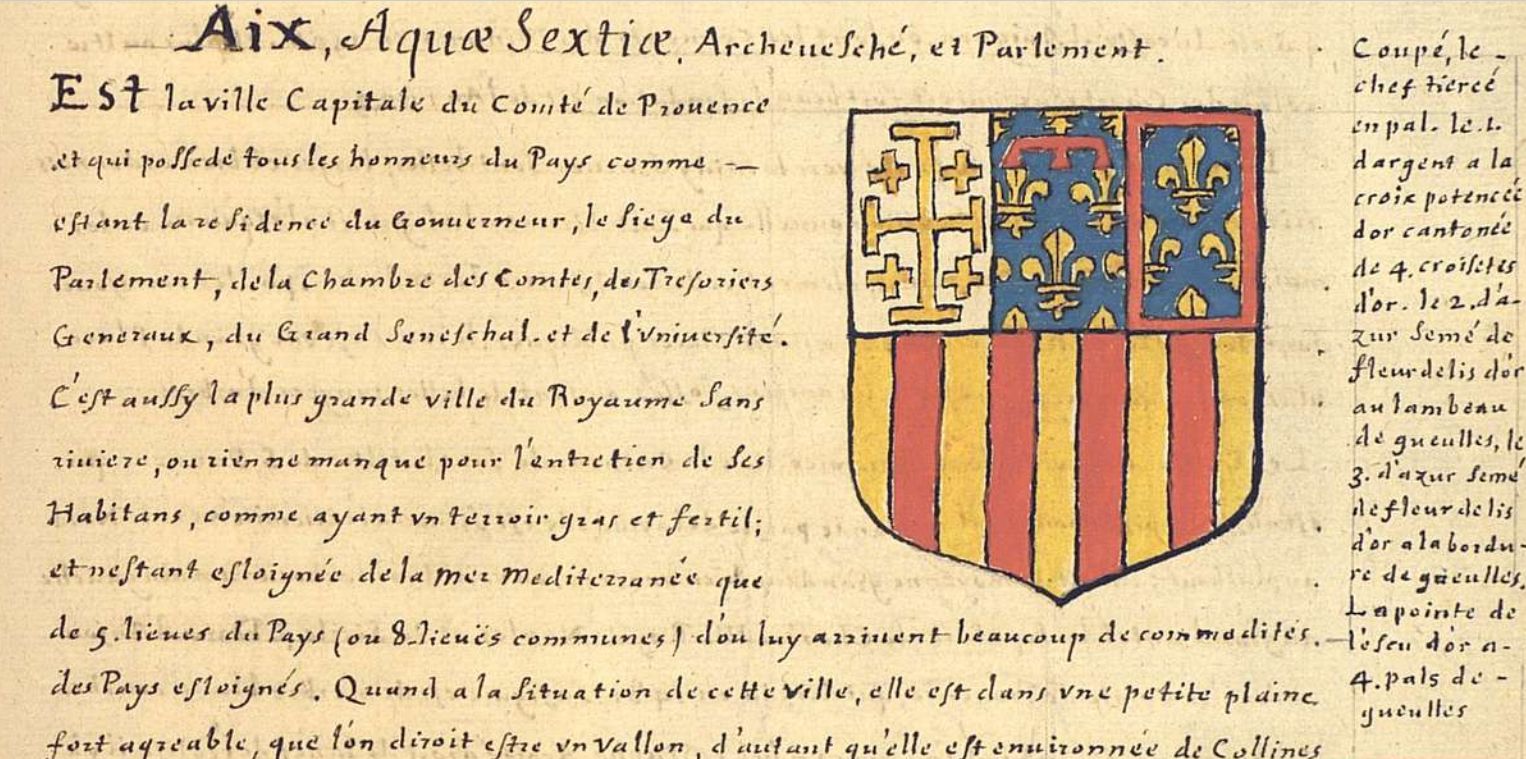 Aix, Aquæ Sextiæ, Archeuesché, et Parlement.
Est la ville Capitale du Comté de Prouence
et qui possede tous les honneurs du Pays comme —
estant la residence du Gouuerneur, le siege du
Parlement, de la Chambre des Comtes, des Tresoriers
Generaux, du Grand Seneschal. et de l'Vniuersité.
C'est aussy la plus grande ville du Royaume sans
riuiere, ou rien ne manque pour l'entretien de ses
Habitans, comme ayant vn terroir gras et fertil;
et nestant esloignée de la mer mediterranée que
de 5. lieues du Pays (ou 8. lieuës communes) d'ou luy arriuent beaucoup de commodités.
des Pays esloignés. Quand a la situation de cette ville, elle est dans vne petite plaine
fort agreable, que l'on diroit estre vn vallon, d'autant qu'elle est enuironnée de Collines
Coupé, le -
chef tiercé
en pal. le 1.
dargent a la
croix potencée
dor cantonée
de 4. croisetes
d'or. le 2. d'a-
zur semé de
fleurdelis d'or
au lambeau
de gueulles, le
3. d'azur semé
de fleur de lis
d'or a la bordu-
re de gueulles.
La pointe de
l'escu d'or a-
4. pals de -
gueulles